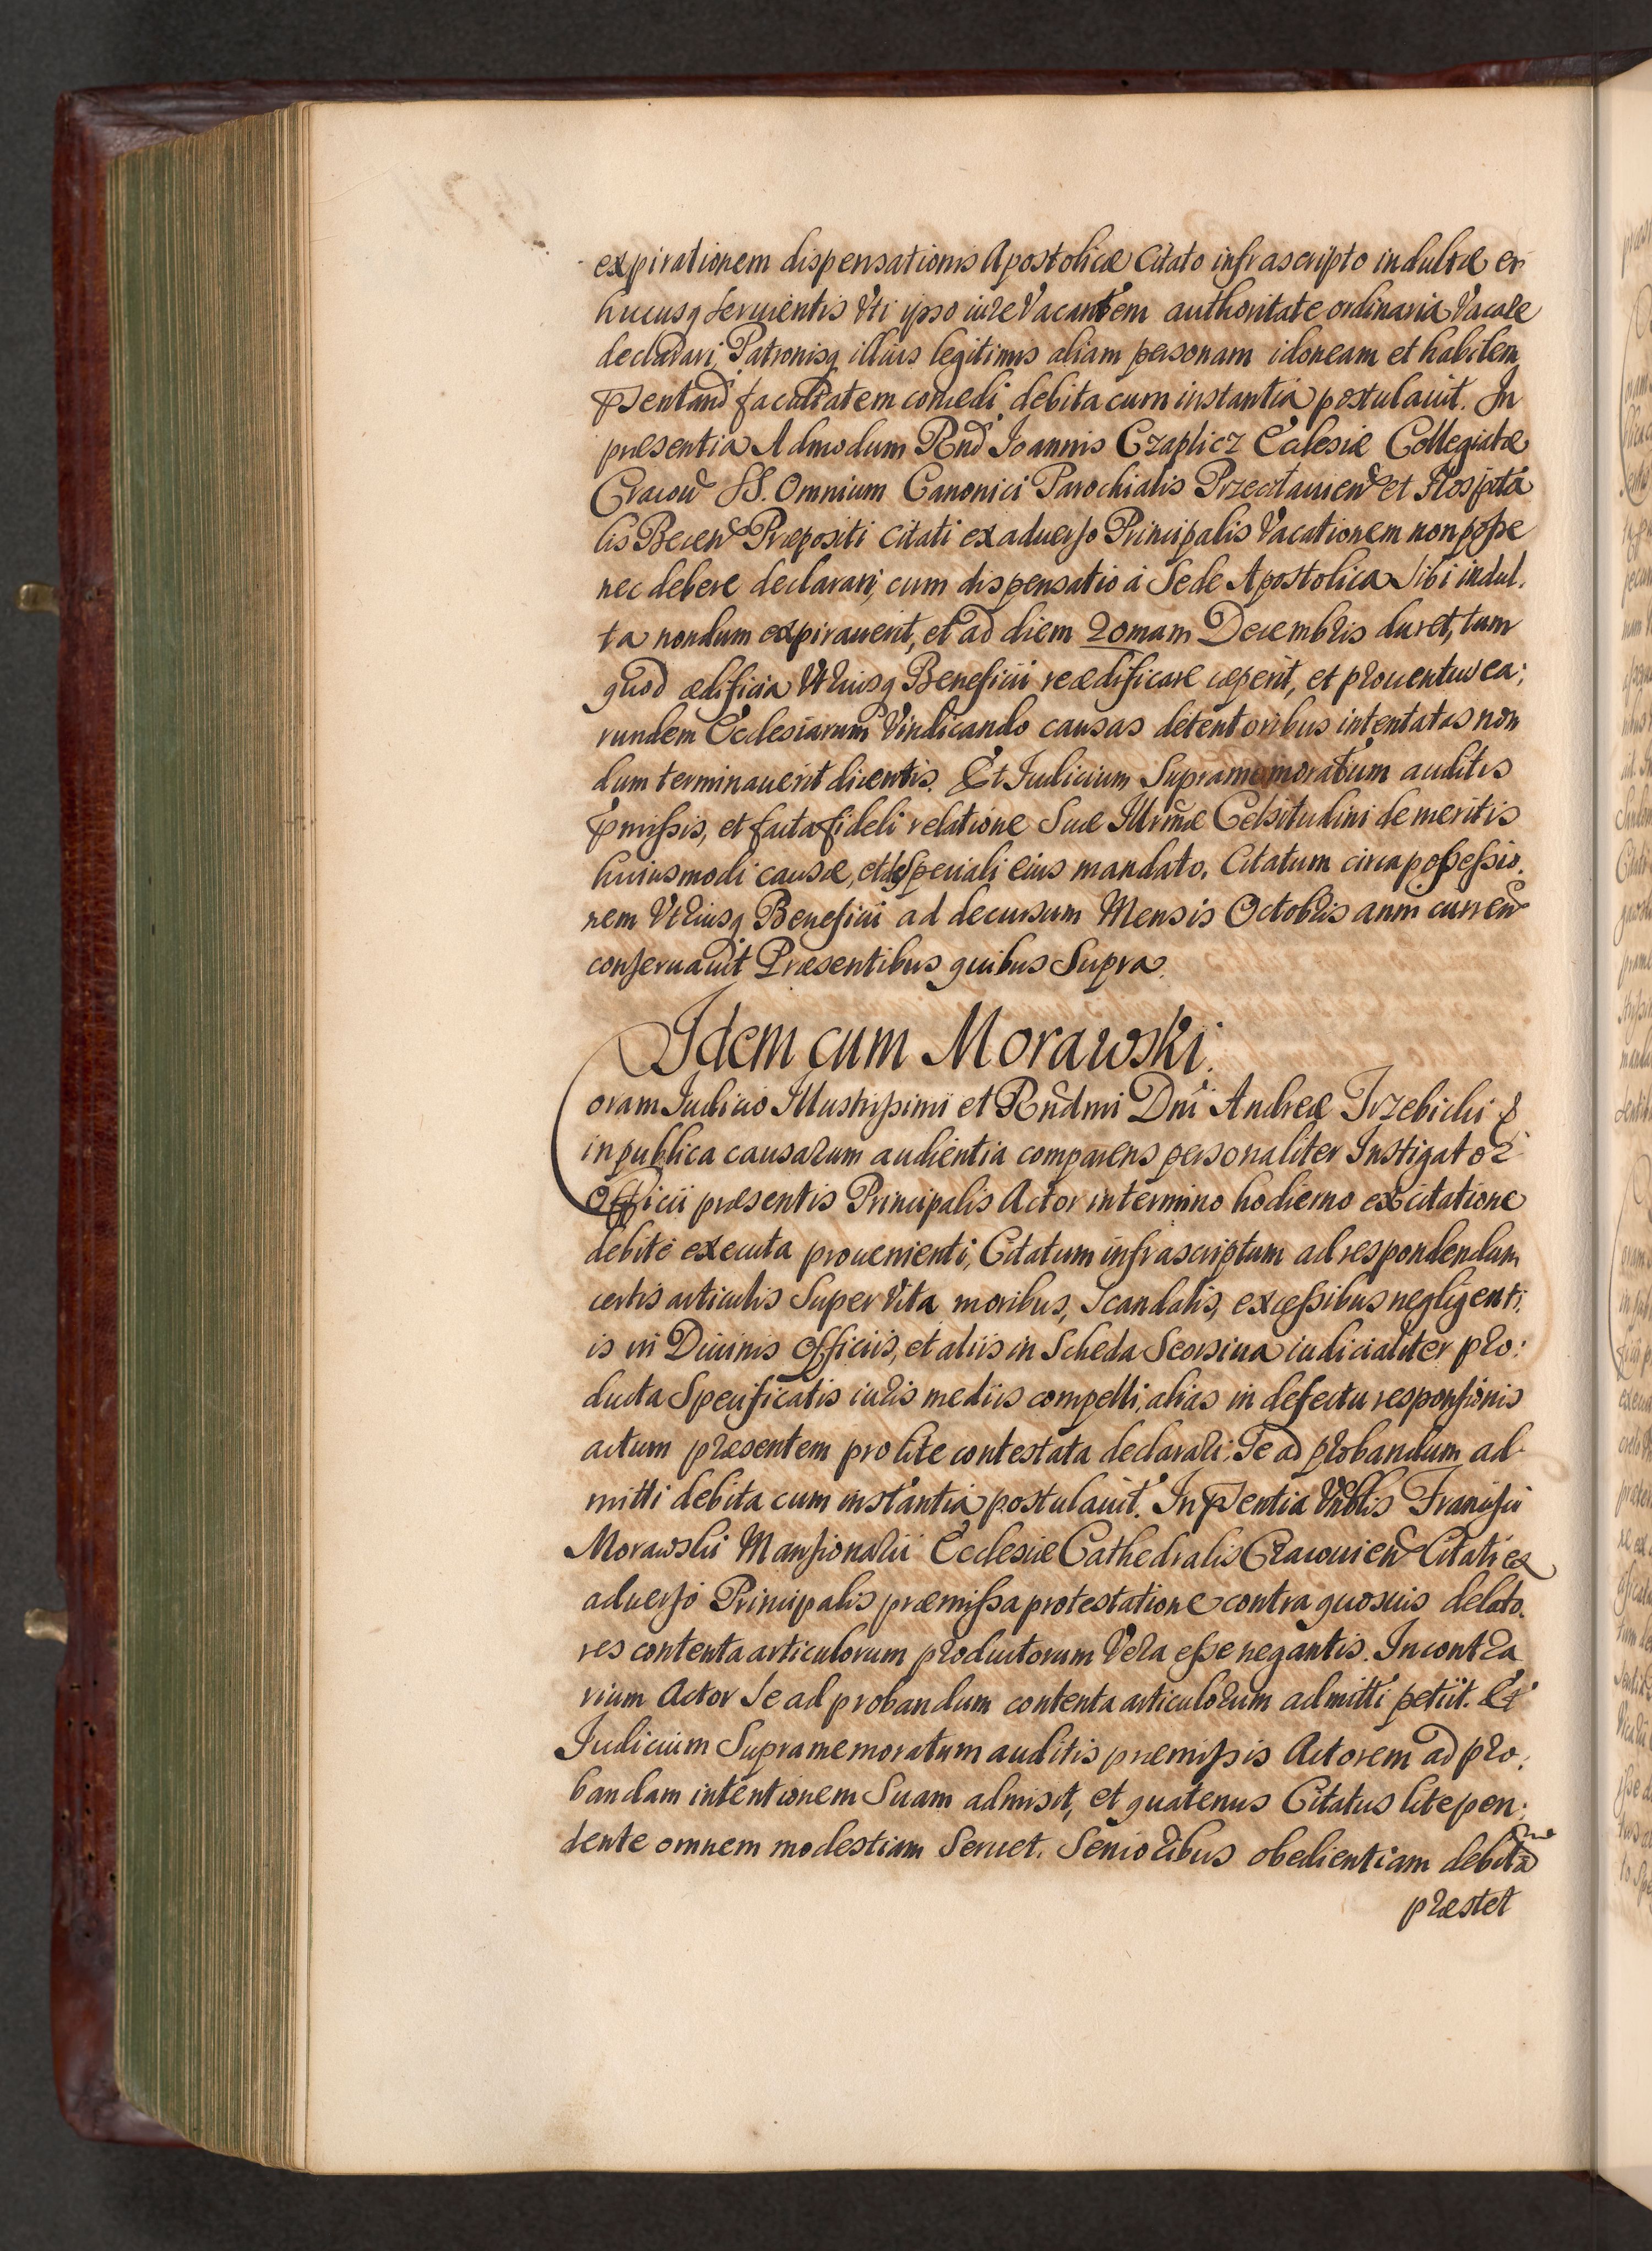 expirationem dispensationis Apostolicæ Citato infrascripto indultæ et
hucusq seruientis Vti ipso iure Vacantem authoritate ordinaria Vacare
declarari Patronisq illius legitimis aliam personam idoneam et habilem
pſentand facultatem concedi debita cum instantia postulauit. In
præsentia Admodum Rnd Ioannis Czaplicz Ecclesiæ Collegiatæ
Cracou SS. Omnium Canonici Parochialis et Hospita
lis Becen Præpositi Citati ex aduerso Principalis Vacationem non poſse
nec debere declarari, cum dispensatio à Sede Apostolica Sibi indul.
ta nondum expirauerit, et ad diem 20mam Decembris duret, tum
quod ædificia Vtriusq Beneficii reædificare cæperit, et prouentus ea:
rundem Ecclesiarum Vindicando causas detentoribus intentatas non
dum terminauerit dicentis. Et Iudicium Supramemoratum auditis
pmiſsis, et facta fideli relatione Suæ Illrmæ Celsitudini de meritis
huiusmodi causæ, et de Speciali eius mandato, Citatum circa poſseſsio.
nem Vtriusq Beneficii ad decursum Mensis Octobris anni curren
conseruauit Præsentibus quibus Supra.
Idem cum Morawski.
Coram Iudicio Illustriſsimi et Rndmi Dni Andreæ Trzebicki &
in publica causarum audientia comparens personaliter Instigator
Officii præsentis Principalis Actor in termino hodierno ex citatione
debite executa proueniente, Citatum infrascriptum ad respondendum
certis articulis Super Vita moribus, Scandalis, exceſsibus negligenti:
is in Diuinis Officiis, et aliis in Scheda Seorsiua iudicialiter pro:
ducta Specificatis iuris mediis compelli, alias in defectu responsionis
actum præsentem pro lite contestata declarari: Se ad probandum ad
mitti debita cum instantia postulauit. In pſentia Vnblis Francisci
Morawski Mansionarii Ecclesiæ Cathedralis Cracouien Citati ex
aduerso Principalis præmiſsa protestatione contra quosuis delato.
res contenta articulorum productorum Vera eſse negantis. In contra
rium Actor Se ad probandum contenta articulorum admitti petiit. Et
Iudicium Supramemoratum auditis præmiſsis Actorem ad pro:
bandam intentionem Suam admisit, et quatenus Citatus lite pen:
dente omnem modestiam Seruet. Senioribus obedientiam debitã
præstet